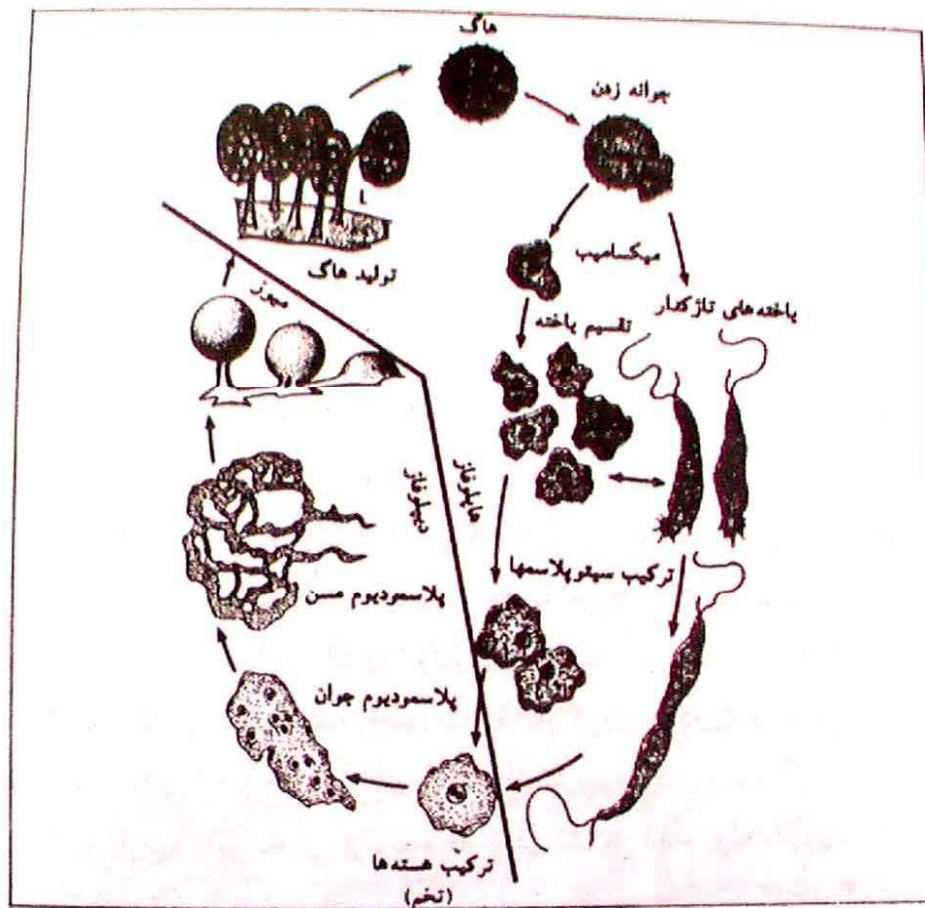 هاگ
جوانه زدن
میکسامیب
یاخته‌های تاژکدار
تقسیم یاخته
تولید هاگ
میوز
دیپلوفاز
هاپلوفاز
ترکیب سیتوپلاسمها
پلاسمودیوم مسن
پلاسمودیوم جوان
ترکیب هسته‌ها
(تخم)